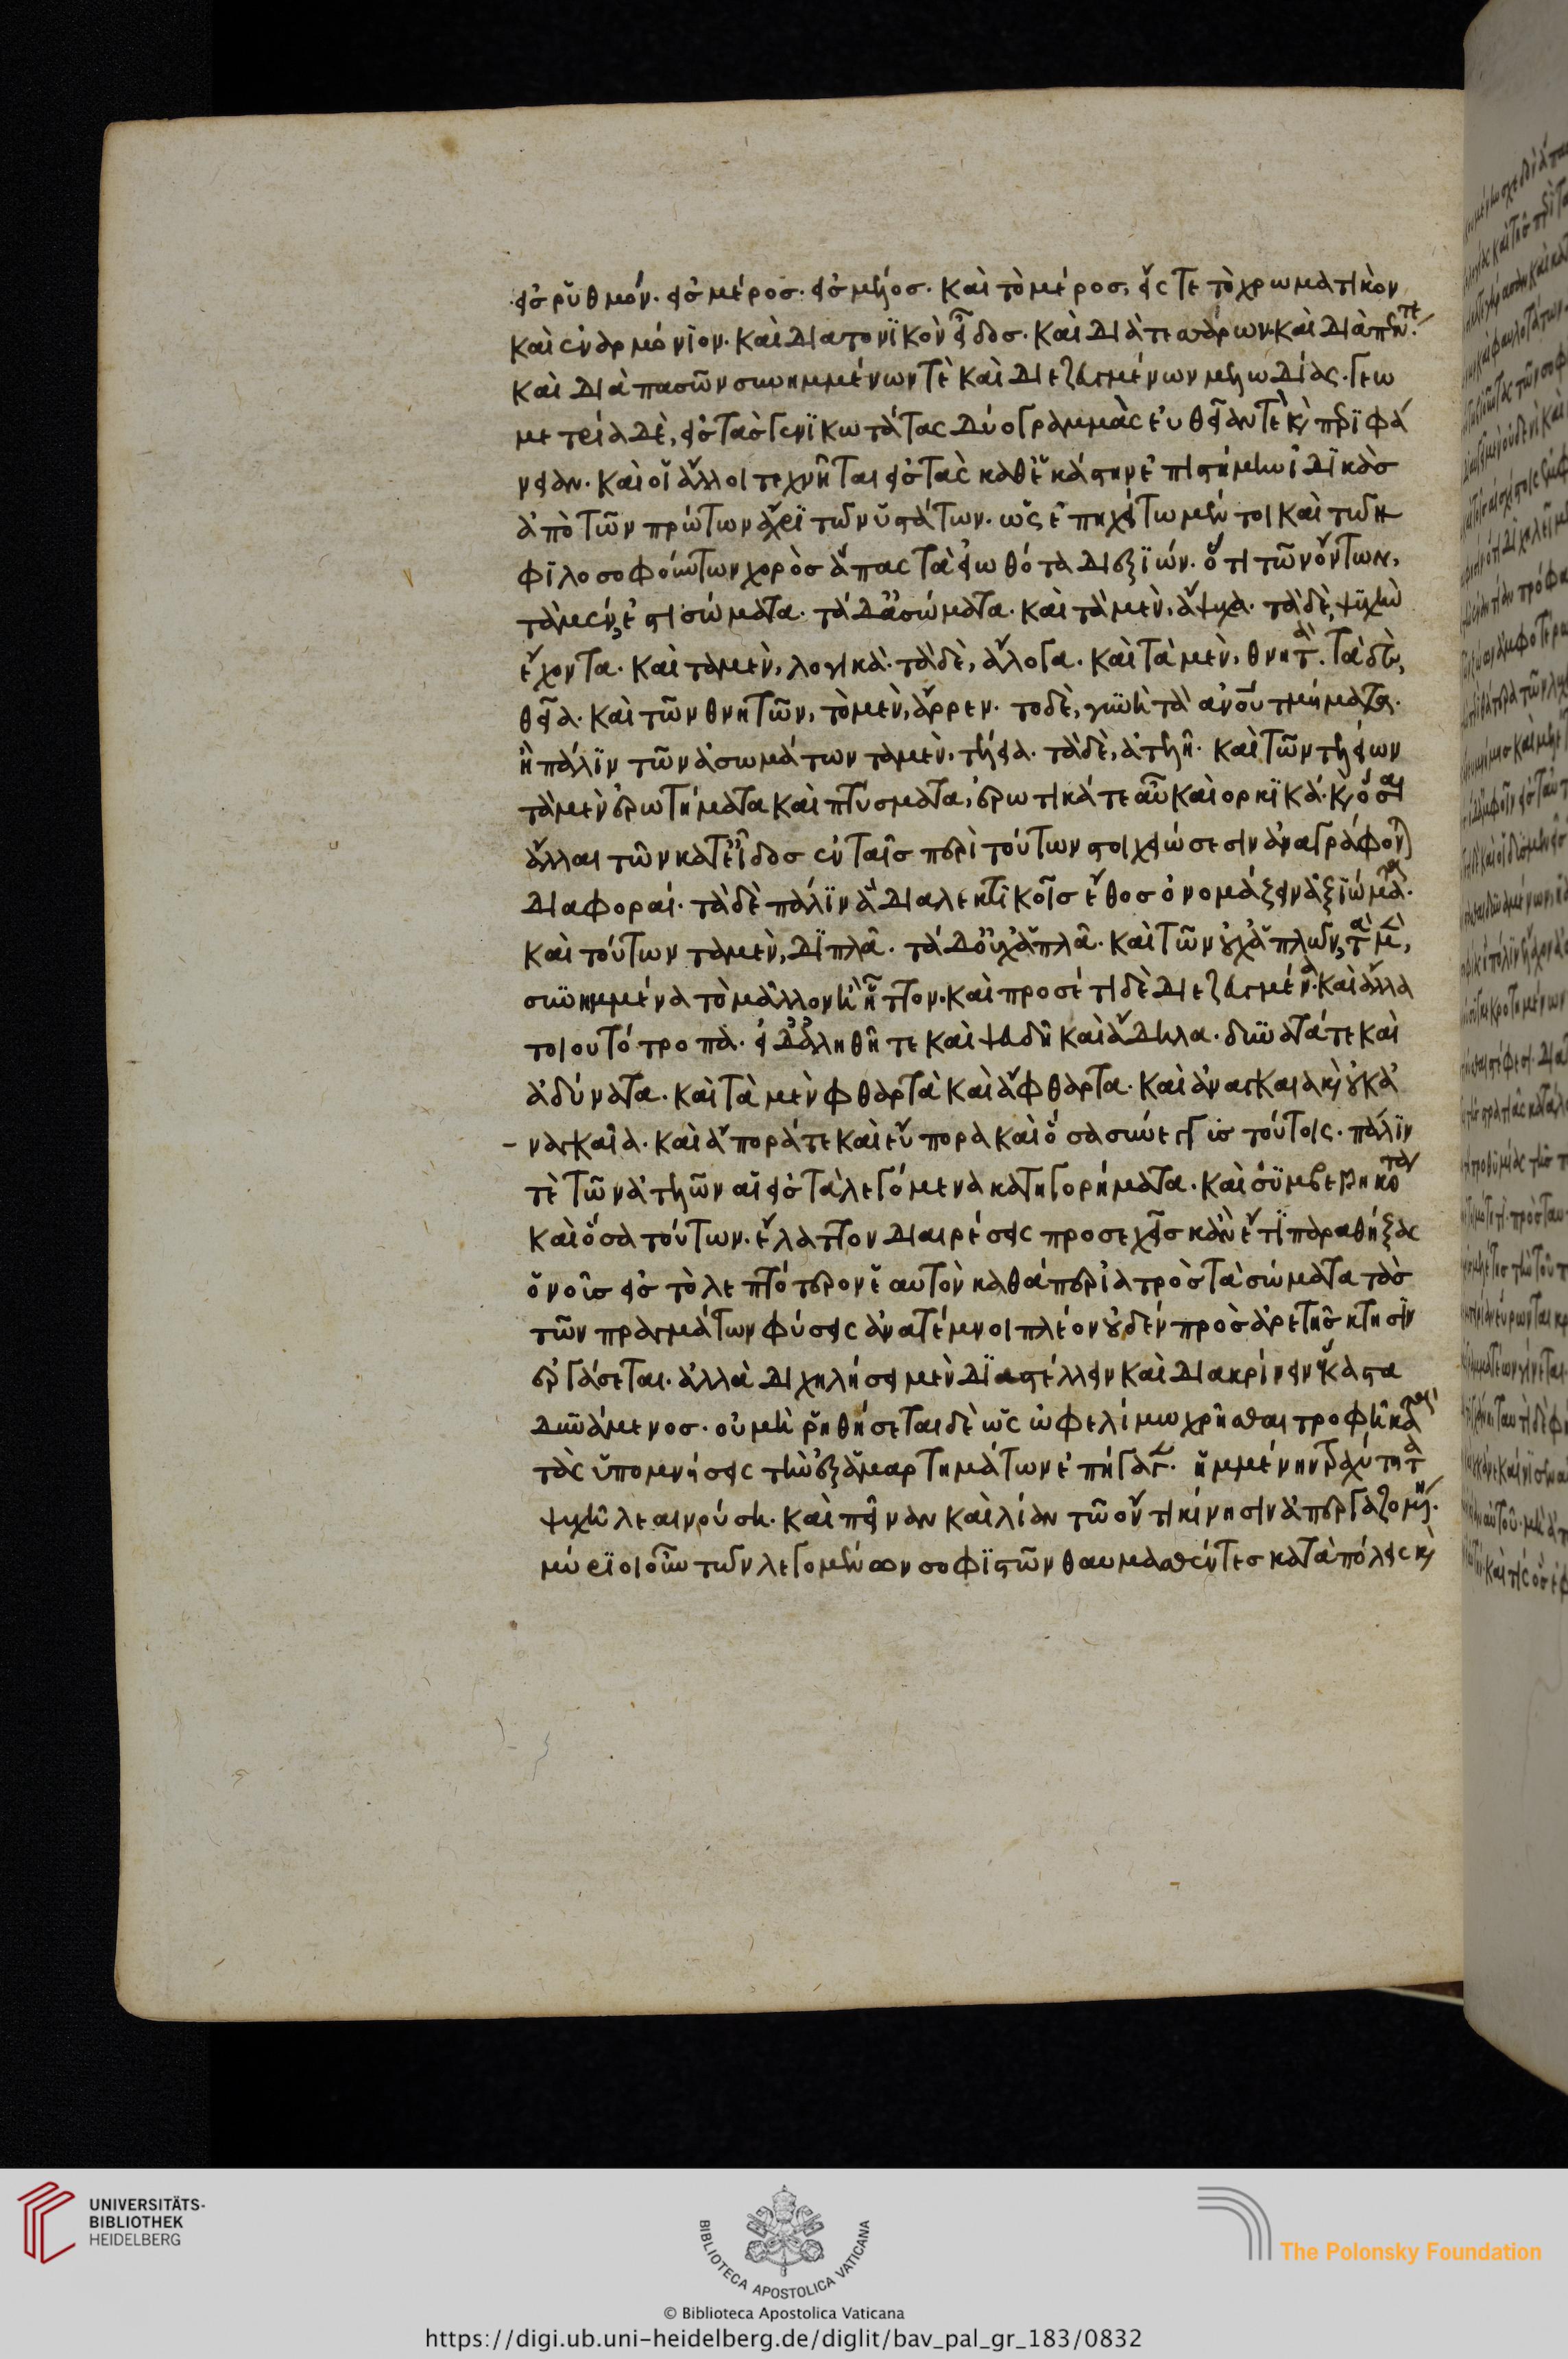 εἰς ῥυθμόν. εἰς μέρος. εἰς μέλος. καὶ τὸ μέρος, εἴς τε τὸ χρωματικὸν
καὶ ἐναρμόνιον. καὶ διατονικὸν εἶδος. καὶ διὰ τεσσάρων. καὶ διὰ πέντε.
καὶ διὰ πασῶν συνημμένων τὲ καὶ διεζευγμένων μελωδίας. γεω
μετρία δὲ, εἰς τὰς γενικωτάτας δύο γραμμὰς εὐθεῖαν τὲ καὶ περιφά
νειαν. καὶ οἱ ἄλλοι τεχνῖται εἰς τὰς καθ' ἑκάστην ἐπιστήμην ἰδικὰς
ἀπὸ τῶν πρώτων ἄχρι τῶν ὑστάτων. ὡς ἐπηχείτω μέν τοι καὶ τῶν
φιλοσοφούντων χορὸς ἅπας τὰ εἰωθότα διεξιών. ὅτι τῶν ὄντων,
τὰ μέν, ἐστι σώματα. τὰ δ' ἀσώματα. καὶ τὰ μὲν, ἄψυχα. τὰ δὲ, ψυχὴν
ἔχοντα. καὶ τὰ μὲν, λογικὰ. τὰ δὲ, ἄλογα. καὶ τὰ μὲν, θνητὰ. τὰ δὲ,
θεῖα. καὶ τῶν θνητῶν, τὸ μὲν, ἄρρεν. τὸ δὲ, γυνὴ τὰ ἀνου τμήματα.
ἢ πάλιν τῶν ἀσωμάτων τὰ μὲν, τέλεια. τὰ δὲ, ἀτελῆ. καὶ τῶν τελείων
τὰ μὲν ἐρωτήματα καὶ πτύσματα, ἐρωτικά τε αὖ καὶ ορκικά. καὶ ὅσαι
ἄλλαι τῶν κατ' εἶδος ἐν ταῖς περὶ τούτων στοιχειώσεσιν ἀναγράφον
διαφοραί. τὰ δὲ πάλιν ἃ διαλεκτικοῖς ἔθος ὀνομάζειν ἀξιώματα.
καὶ τούτων τὰ μὲν, διπλᾶ. τὰ δ' οὐχ ἁπλᾶ. καὶ τῶν οὐχ ἁπλῶν, τὰ μὲν,
συνημμένα τὸ μᾶλλον ἢ ἧττον. καὶ προσέτι δὲ διεζευγμένα. καὶ ἄλλα
τοιουτότροπα. εἰ δ' ἀληθῆ τε καὶ ψευδῆ καὶ ἄδηλα. δυνατά τε καὶ
ἀδύνατα. καὶ τὰ μὲν φθαρτὰ καὶ ἄφθαρτα. καὶ ἀναγκαια καὶ οὐκ ἀ
ναγκαῖα. καὶ ἄπορά τε καὶ εὔπορα καὶ ὅσα συνεγγὺς τούτοις. πάλιν
τὲ τῶν ἀτελῶν αἱ εἰς τὰ λεγόμενα κατηγορήματα. καὶ συμβεβηκότα
καὶ ὅσα τούτων. ἔλαττον διαιρέσεις προσεχεῖς κἂν ἔτι παραθήξας
ὁ νοῦς εἰς τὸ λεπτότερον ἑαυτὸν καθάπερ ἰατρὸς τὰ σώματα τὰς
τῶν πραγμάτων φύσεις ἀνατέμνοι πλέον οὐδὲν πρὸς ἀρετῆς κτησιν
ἐργάσεται. ἀλλὰ διχηλήσει μὲν διαστέλλειν καὶ διακρίνειν ἕκαστα
δυνάμενος. οὐ μὴ ῥηθήσεται δὲ ὡς ὠφελίμω χρῆσθαι τροφῆ κατὰ
τὰς ὑπομνήσεις τὴν ἐξ ἁμαρτημάτων ἐπήγαγε. ἡμμένην τραχύτητα
ψυχῆ λεαινούση. καὶ πεῖναν καὶ λίαν τῶ ὄντι κίνησιν ἀπεργαζομένη.
μύριοι οὖν τῶν λεγομένων σοφιστῶν θαυμασθέντες κατὰ πόλεις καὶ
UNIVERSITÄTS-
BIBLIOTHEK
HEIDELBERG
BIBLIOTECA APOSTOLICA VATICANA
The Polonsky Foundation
© Biblioteca Apostolica Vaticana
https://digi.ub.uni-heidelberg.de/diglit/bav_pal_gr_183/0832